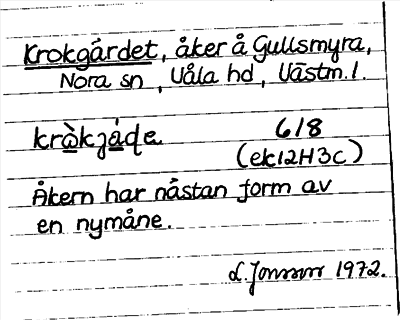 Krokgärdet, åker å Gullsmyra,
Nora sn, Våla hd, Västm. l.
kròkjäde 618
(ek12H3c)
Åkern har nästan form av
en nymåne.
L. Jonsson 1972.